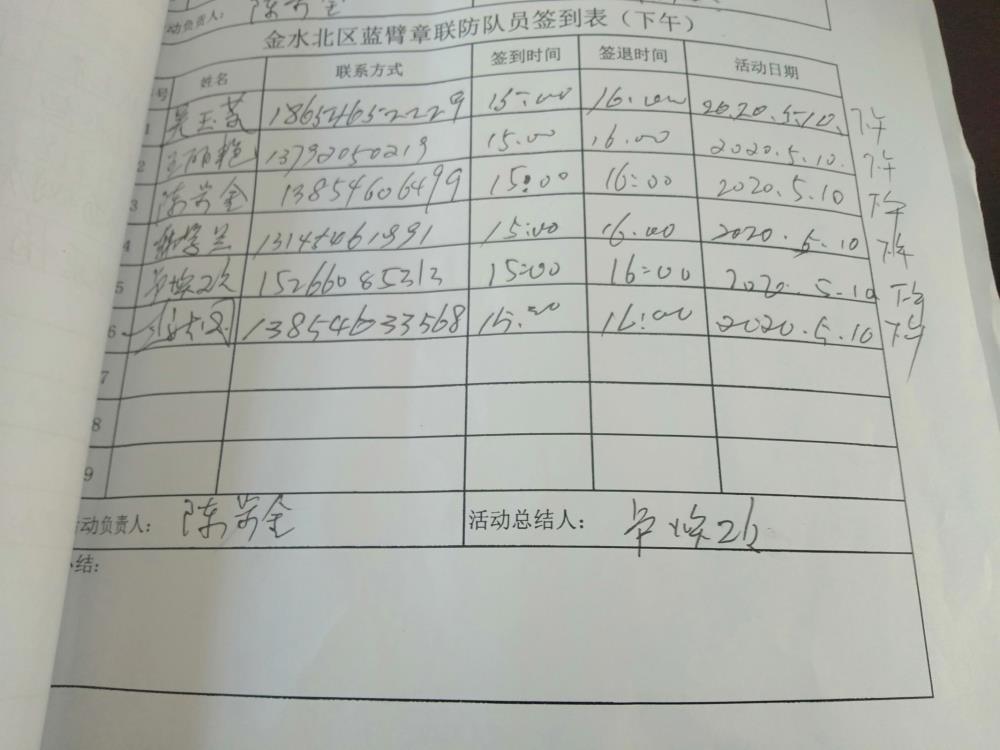 动负责人：陈芳金
金水北区蓝臂章联防队员签到表（下午）
号 姓名 联系方式 签到时间 签退时间 活动日期
1 吴玉芬 18654652229 15:00 16:00 2020.5.10. 下午
2 13792050219 15.00 16.00 2020.5.10. 下午
3 陈芳金 13854606499 15:00 16:00 2020.5.10 下午
4 15:00 16.00 2020.5.10 下午
5 15266085313 15:00 16:00 2020.5.10 下午
6 13854633568 15:00 16:00 2020.5.10 下午
7
8
9
动负责人：陈芳金 活动总结人：
结：